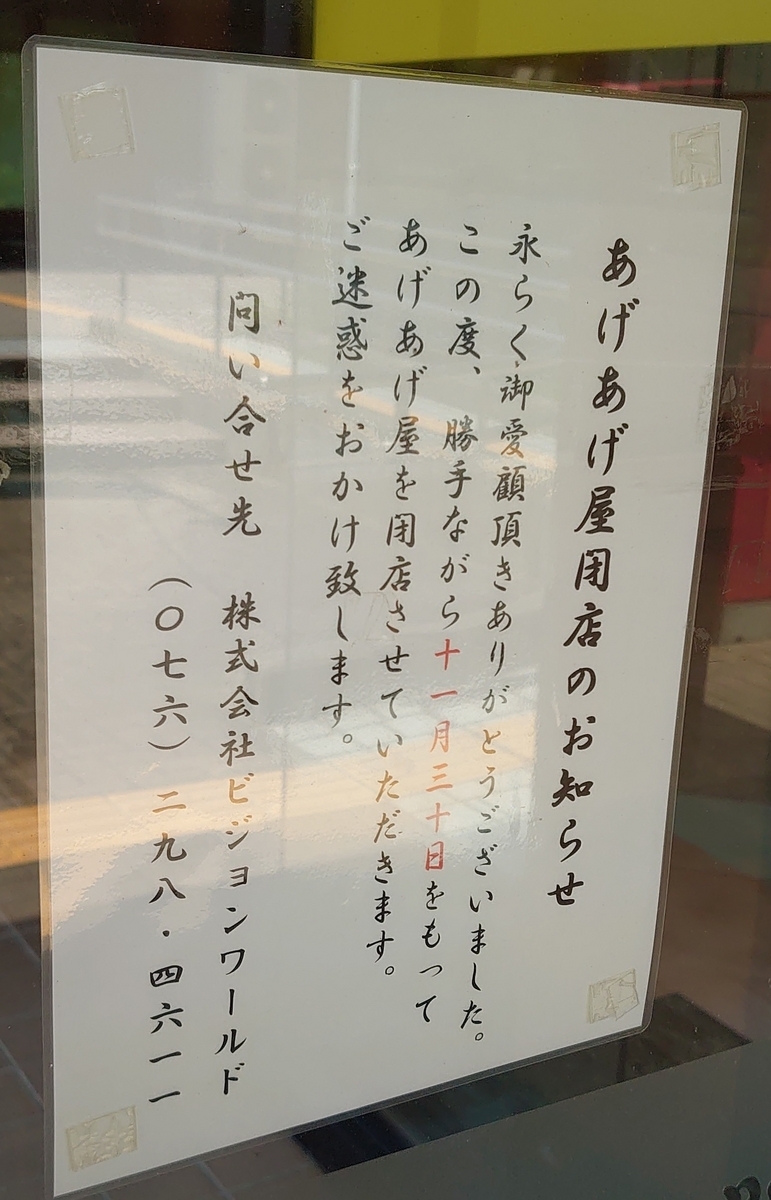 あげあげ屋閉店のお知らせ
永らく御愛顧頂きありがとうございました。
この度、勝手ながら十一月三十日をもって
あげあげ屋を閉店させていただきます。
ご迷惑をおかけ致します。
問い合せ先 株式会社ビジョンワールド
(〇七六)二九八・四六一一